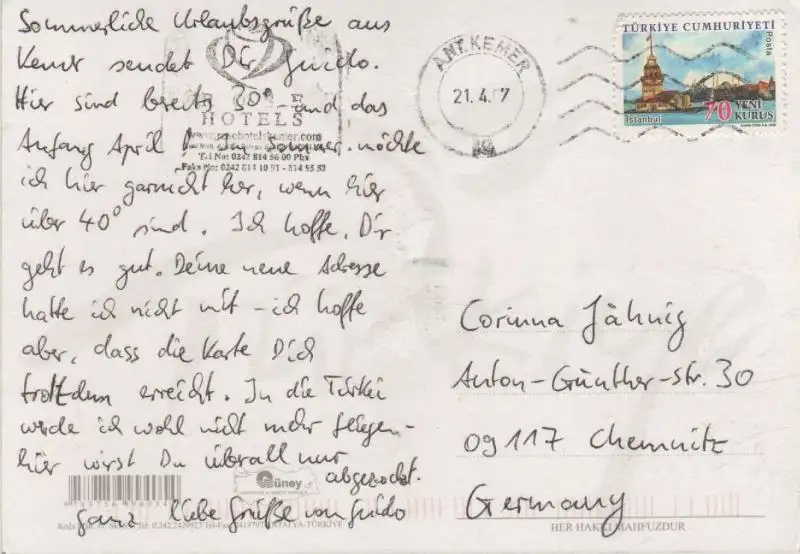 Sommerliche Urlaubsgrüße aus
Kemer sendet Dir Guido.
Hier sind bereits 30° und das
Anfang April! Im Sommer möchte
ich hier garnicht her, wenn hier
über 40° sind. Ich hoffe, Dir
geht es gut. Deine neue Adresse
hatte ich nicht mit - ich hoffe
aber, dass die Karte Dich
trotzdem erreicht. In die Türkei
werde ich wohl nicht mehr fliegen -
hier wirst Du überall nur
abgezockt.
ganz liebe Grüße von Guido
HOTELS
Tel No: 0242 814 56 00 Pbx
Faks No: 0242 814 10 91 - 814 55 52
Güney
ANTALYA-TÜRKİYE
ANT. KEMER
21.4.07
TÜRKİYE CUMHURİYETİ
Posta
İstanbul
70 YENİ
KURUŞ
Corinna Jähnig
Anton-Günther-Str. 30
09117 Chemnitz
Germany
HER HAKKI MAHFUZDUR